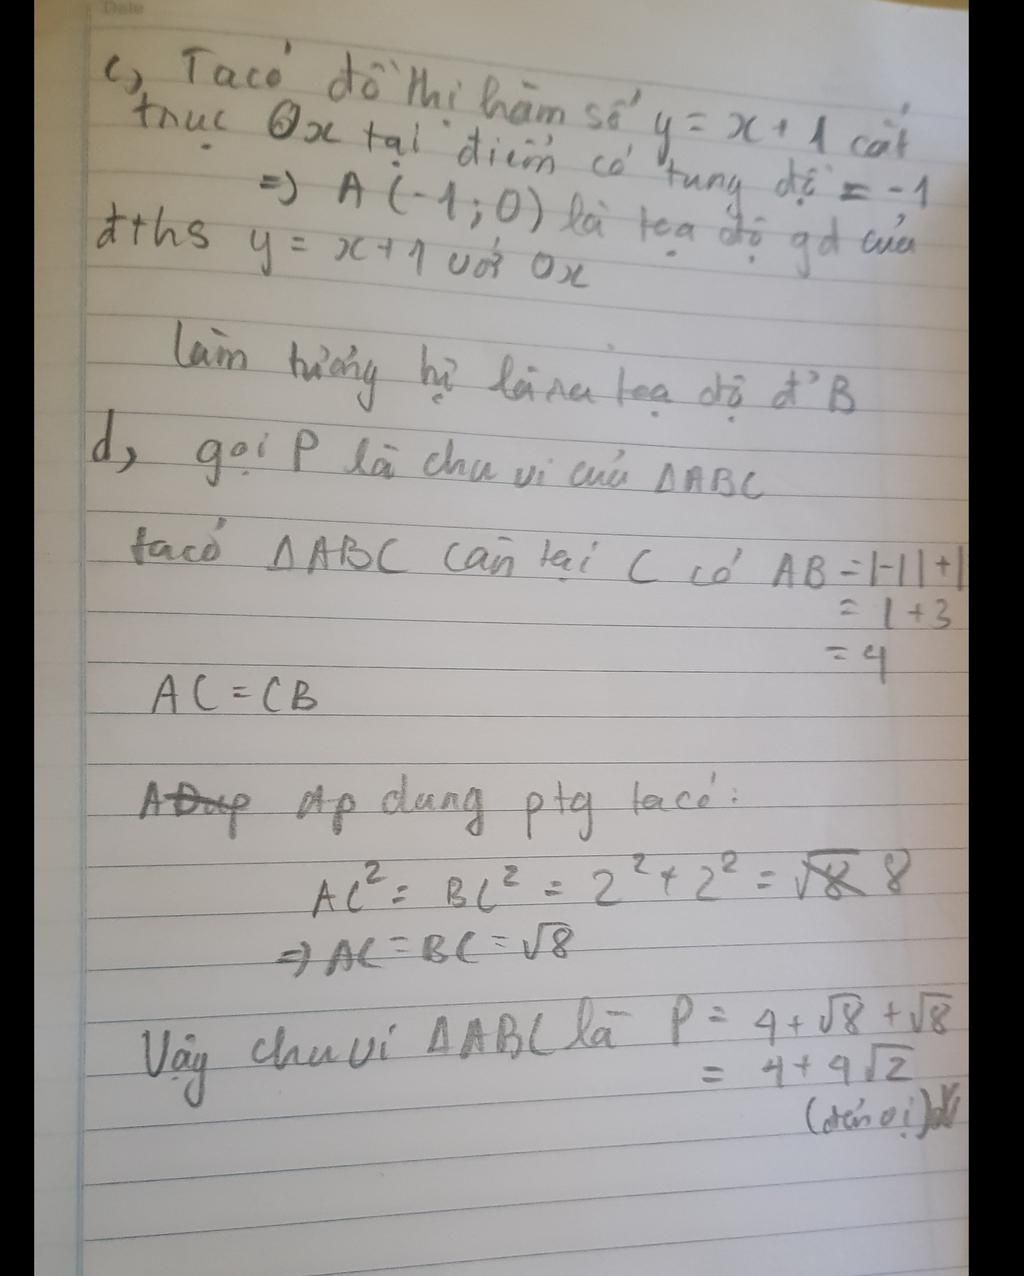 Date
c, Ta có đồ thị hàm số y = x + 1 cắt
trục Ox tại điểm có tung độ = -1
=> A (-1; 0) là tọa độ gđ của
đths y = x + 1 với Ox
làm tương tự tọa độ đ' B
d, gọi P là chu vi của ΔABC
ta có ΔABC cân tại C có AB = |-1| + |
= 1 + 3
= 4
AC = CB
Áp dung ptg ta có:
AC² = BC² = 2² + 2² = √8 8
=> AC = BC = √8
Vậy chu vi ΔABC là P = 4 + √8 + √8
= 4 + 4√2
(đơn vị)